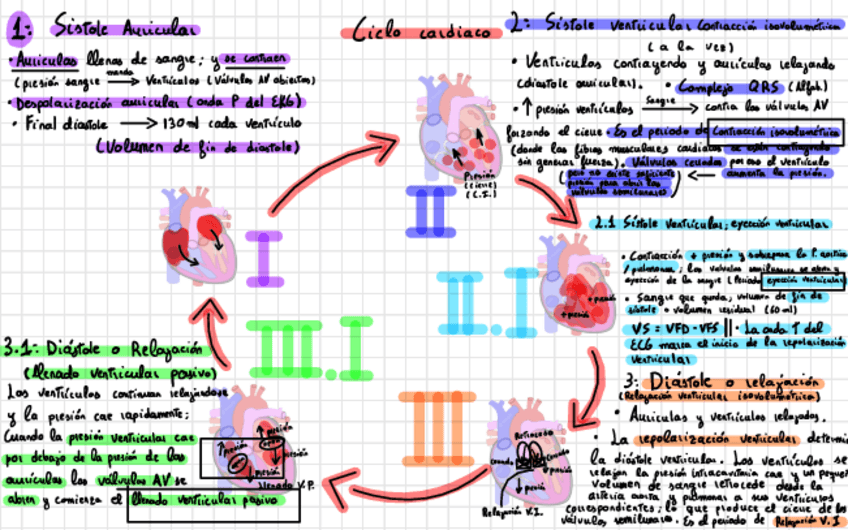 1: Sístole Auricular
· Auriculas llenas de sangre; y se contraen
(presión sangre manda → Ventrículos (Válvulas AV abiertas)
· Despolarización auricular (onda P del EKG)
· Final diástole → 130ml cada ventrículo
(Volumen de fin de diastole)
Ciclo cardiaco
2: Sístole ventricular Contracción isovolumétrica
(a la vez)
· Ventriculos contrayendo y auriculas relajando
(diastole auricular). · Complejo QRS (Alfab.)
· ↑ presión ventriculos Sangre → contra las válvulas AV
forzando el cierre · Es el periodo de Contracción isovolumétrica
(donde las fibras musculares cardiacas se están contrayendo
sin generar fuerza). Válvulas cerradas por eso el ventriculo
(pero no existe suficiente ← aumenta la presión.
presión para abrir las
válvulas semilunares)
Presión
(cierre)
(C.I.)
I
II
II.I
III
III.I
2.1 Sístole Ventricular; eyección ventricular
· Contracción + presión y sobrepasa la P. aortica
/ pulmonar; las valvulas semilunares se abren y
eyección de la sangre (Periodo eyección ventricular
· Sangre que queda; volumen de fin de
sístole o volumen residual (60ml)
VS = VFD - VFS || · La onda T del
ECG marca el inicio de la repolarización
Ventricular
+ presión
+ presión
3: Diástole o relajación
(Relajación ventricular isovolumétrica)
· Auriculas y ventrículos relajados.
· La repolarización ventricular determina
la diástole ventricular. Los ventrículos se
relajan la presión intracavitaria cae y un pequeño
volumen de sangre retrocede desde la
arteria aorta y pulmonar a sus ventrículos
correspondientes; lo que produce el cierre de las
válvulas semilunares. Es el periodo de Relajación V.I
Retroceso
cerrado
cerrado
↓ presión
↓ presión
Relajación V.I.
3.1: Diástole o Relajación
(llenado ventricular pasivo)
Los ventrículos continuan relajandose
y la presión cae rapidamente;
Cuando la presión ventricular cae
por debajo de la presión de las
auriculas las válvulas AV se
abren y comienza el llenado ventricular pasivo
↑ presión
↑ presión
↓ presión
↓ presión
llenado V.P.